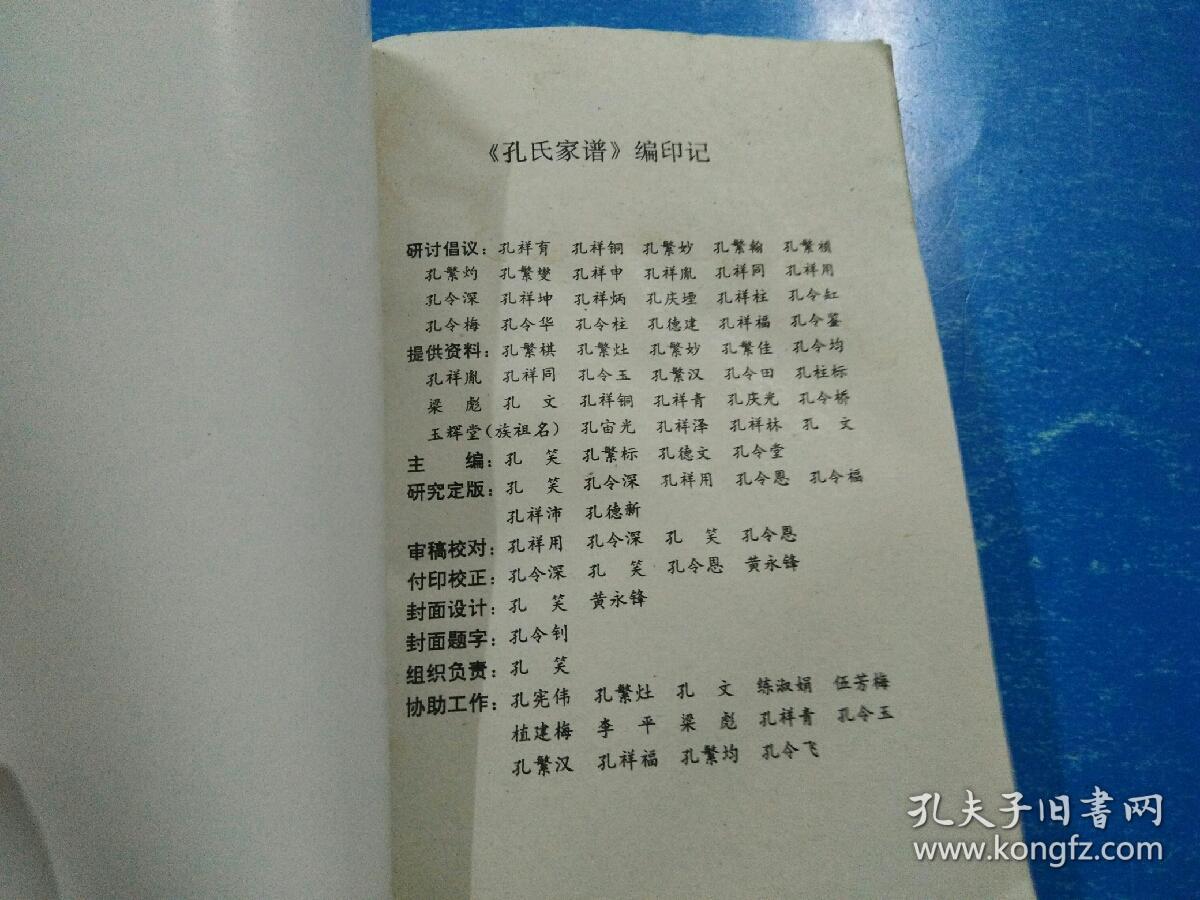 《孔氏家谱》编印记
研讨倡议：孔祥育 孔祥铜 孔繁妙 孔繁翰 孔繁桢
孔繁灼 孔繁燮 孔祥申 孔祥胤 孔祥同 孔祥用
孔令深 孔祥坤 孔祥炳 孔庆堙 孔祥柱 孔令缸
孔令梅 孔令华 孔令柱 孔德建 孔祥福 孔令鉴
提供资料：孔繁棋 孔繁灶 孔繁妙 孔繁佳 孔令均
孔祥胤 孔祥同 孔令玉 孔繁汉 孔令田 孔柱标
梁 彪 孔 文 孔祥铜 孔祥青 孔庆光 孔令桥
玉辉堂（族祖名） 孔宙光 孔祥泽 孔祥林 孔 文
主 编：孔 笑 孔繁标 孔德文 孔令堂
研究定版：孔 笑 孔令深 孔祥用 孔令恩 孔令福
孔祥沛 孔德新
审稿校对：孔祥用 孔令深 孔 笑 孔令恩
付印校正：孔令深 孔 笑 孔令恩 黄永锋
封面设计：孔 笑 黄永锋
封面题字：孔令钊
组织负责：孔 笑
协助工作：孔宪伟 孔繁灶 孔 文 练淑娟 伍芳梅
植建梅 李 平 梁 彪 孔祥青 孔令玉
孔繁汉 孔祥福 孔繁均 孔令飞
孔夫子旧书网
www.kongfz.com